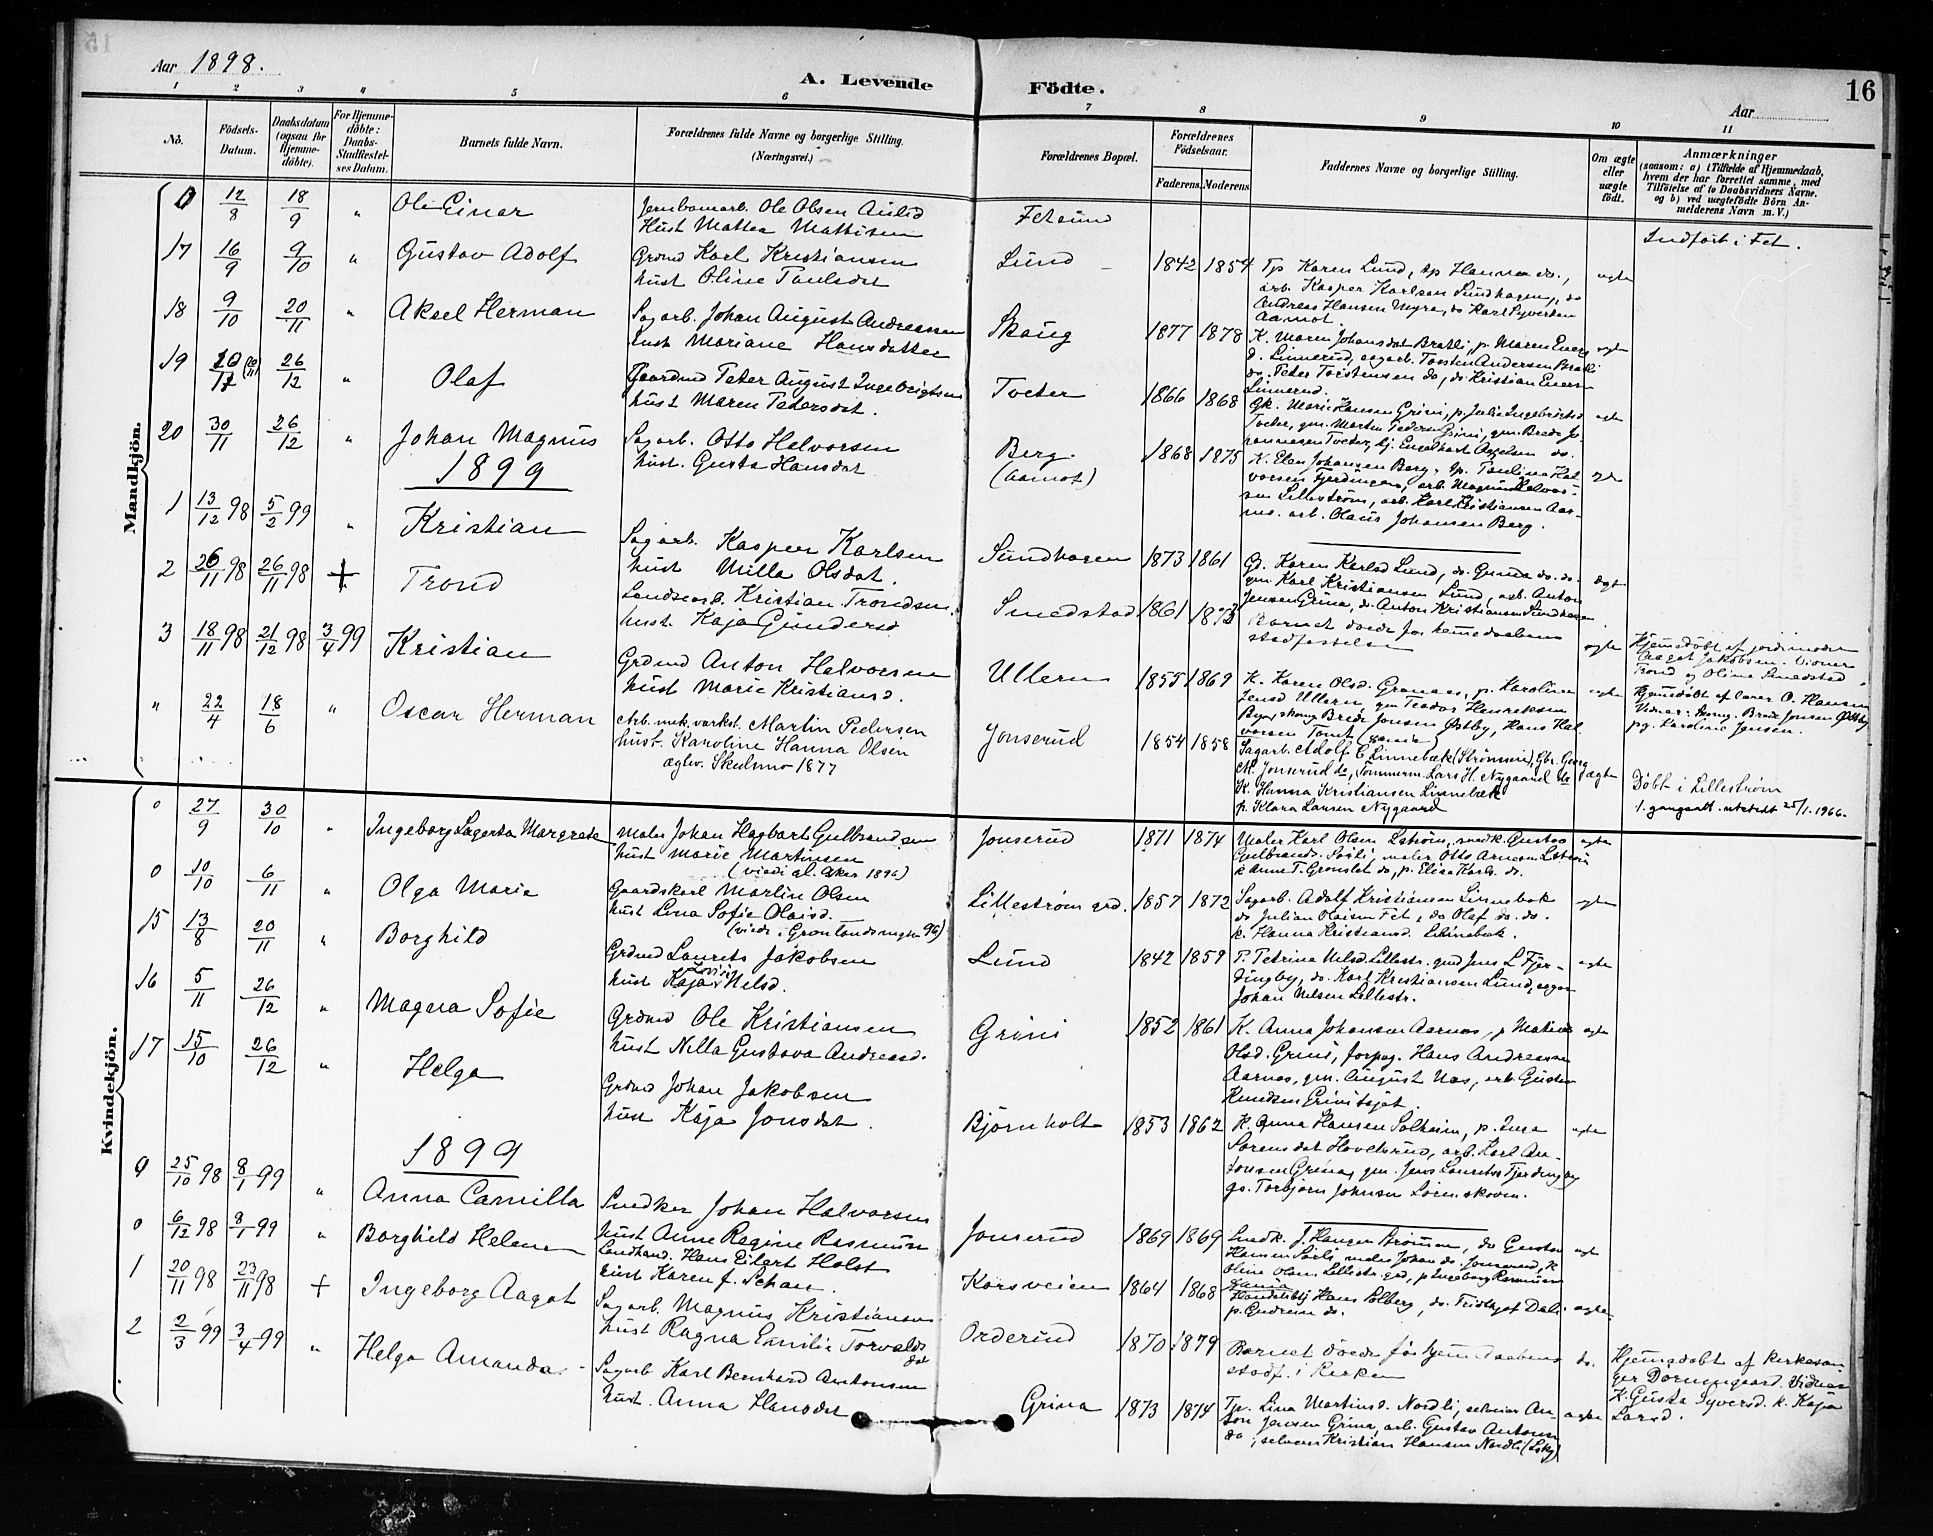 Aar 1898.
A. Levende
Födte.
Aar
16
1 2 3 4 5 6 7 8 9 10 11
No.
Födsels-Datum.
Daabsdatum (ogsaa for Hjemmedöbte).
For Hjemmedöbte: Daabs-Stadfæstelses Datum.
Barnets fulde Navn.
Forældrenes fulde Navne og borgerlige Stilling.
(Næringsvei.)
Forældrenes Bopæl.
Forældrenes Födselsaar.
Faderens. Moderens.
Faddernes Navne og borgerlige Stilling.
Om ægte eller uægte födt.
Anmærkninger
(saasom: a) i Tilfælde af Hjemmedaab, hvem der har forrettet samme, med Tilföielse af to Daabsvidners Navne. og b) ved uægtefödte Börn Anmelderens Navn m. V.)
Mandkjön.
0 12/8 18/9 " Ole Einar
Jernbanearb. Ole Olsen
Hust Mattea Mathisen
Fetsund
Indført i Fet.
17 16/9 9/10 " Gustav Adolf
Grdmd Karl Kristiansen
hust Oline Paulsdat
Lund 1842 1854
Tp Karen Lund, tp Hanna do.,
arb. Kasper Karlsen Sundhagen, do
Andreas Hansen Myra, do Karl Syversen
Aamot.
ægte
18 9/10 20/11 " Aksel Herman
Sagarb. Johan August Andreassen
hust Mariane Hansdatter
Skaug 1877 1878
K. Maren Johansdat Bratli, p. Maren Evens
d. Linnerud, sagarb. Torsten Andersen Bratli
do. Peter Torstensen do, do Kristian Evens
Linnerud.
ægte
19 26/12 " Olaf
Gaardmd Peter August Ingebrigtsen
hust Maren Pedersdat.
Tveter 1866 1868
Gk. Marie Hansen Grini, p. Julie Ingebrigtsd
Tveter, gm. Morten Pedersen Grini, gm. Brede Jo-
hannesen Tveter, Engelhart Aagesen do.
ægte
20 30/11 26/12 " Johan Magnus
Sagarb. Otto Halvorsen
hust. Gusta Hansdat.
Berg.
(Aamot) 1868 1875
K. Elen Johansen Berg, tp. Paulina Hal
vorsen Fjerdingen, arb. Magnus Halvor-
sen Lillestrøm, arb. Karl Kristiansen Aar-
nes. arb. Olaus Johansen Berg.
ægte
1899
1 13/12 98 5/2 99 " Kristian
Sagarb. Kasper Karlsen
hust Milla Olsdat.
Sundhagen 1873 1861
G. Karen Karlsd Lund, do. Gunda do. do.
gm Karl Kristiansen Lund, arb. Anton
Jensen Grina, do. Anton Kristiansen Sundhagen
ægte
2 26/11 98 26/11 98 + Trond
Landsarb. Kristian Trondsen
hust Kaja Gundersd
Smedstad 1861 1873
Barnet døde før hjemmedaabens
stadfestelse
ægte
Hjemedøbt af jordmoder
Aagot Jakobsen. Vidner
Trond og Oline Smedstad
3 18/11 98 21/12 98 3/4 99 Kristian
Grdmd Anton Halvorsen
hust Marie Kristiansd.
Ullern 1855 1869
K. Karen Olsd. Granaas, p. Karoline
Jensd Ullern, gm Teodor Henriksen
Brede Jonsen Østby, Hans Hal
vorsen Tomt
ægte
Hjemedøbt af lærer O. Hansen
Vidner: Brede Jonsen Østby
pg. Karoline Jensen.
" 22/4 18/6 " Oscar Herman
Arb. mek. verkst. Martin Pedersen
hust. Karoline Hanna Olsen
ægtev. Skedsmo 1877
Jonserud 1854 1858
Sagarb. Adolf C. Linnebæk (Strømmen), Gbr. Georg
M. Jonserud do, Tømmerm. Lars H. Nygaard do
K. Hanna Kristiansen Linnebæk
p. Klara Larsen Nygaard
ægte
Døbt i Lillestrøm
1. gangsatt. utstedt 25/1. 1966.
Kvindekjön.
0 27/9 30/10 " Ingeborg Lagerta Margrete
Maler Johan Hagbart Gulbrandsen
hust Marie Martinsen
(viedi al. Aker 1894)
Jonserud 1871 1874
Maler Karl Olsen Lstrøm, snedk. Gustav
Gulbrands. Sørli, maler Otto Arnesen Lstrøm
k Anne T. Grønslet do, p. Elisa Karls. do.
ægte
0 10/10 6/11 " Olga Marie
Gaardskarl Martin Olsen
hust Lina Sofie Olaisd.
(viede i Grønlands mgh 96)
Lillestrøm grd. 1857 1872
Sagarb. Adolf Kristiansen Linnebæk
do Julian Olaisen Fet, do Olaf do. do.
k. Hanna Kristiansd. Linnebæk.
ægte
15 13/8 20/11 " Borghild
Grdmd Laurits Jakobsen
hust Kaja Lovise Nilsd.
Lund 1842 1859
P. Petrina Nilsd Lillestr. gmd Jens L Fjer-
dingby, do. Karl Kristiansen Lund,
Johan Nilsen Lillestr.
ægte
16 5/11 26/12 " Magna Sofie
Grdmd Ole Kristiansen
hust Nilla Gustava Andreasd.
Grini 1852 1861
K. Anna Johansen Aarnes, p Matines
Olsd. Grini, forpag. Hans Andreassen
Aarnes, gm. August Nas, arb. Gustav
Knudsen Grinitajet.
ægte
17 15/10 26/12 " Helga
Grdmd Johan Jakobsen
hust Kaja Jonsdat.
Bjørnholt 1853 1862
K. Anna Hansen Solheim, p. Inga
Sorensdat Hovelsrud, arb. Karl An-
tonsen Grina, gm. Jens Lauritsen Fjerdingby
gs. Torbjørn Johnsen Lørenskoven.
ægte
1899
9 25/10 98 8/1 99 " Anna Camilla
Snedker Johan Halvorsen
hust Anne Regine Rasmusen
Jonserud 1869 1869
Snedk. J. Hansen Strømmen, do Gustav
Hansen Sørli, maler Johan do. Jonserud, K
Oline Olsen, Lillestr. grd, p Ingeborg Rasmussen
ægte
0 6/12 98 8/1 99 " Borghild Helene
Landhand. Hans Eilert Holst
hust Karen f. Schau.
Korsveien 1864 1868
Handelsbtj Hans Solberg, do. Tridtjof Dal.
p. Gudrun do.
ægte
1 20/11 98 23/11 98 + Ingeborg Aagot
Sagarb. Magnus Kristiansen
hust Ragna Emilie Torvalds
dat
Orderud 1870 1879
Barnet døde før hjem daabens
stadf. i Kirken
do.
Hjemedøbt af kirkesan-
ger Dørumgaard. Vidner
K. Gusta Syversd. k. Kaja
Larsd.
2 2/3 99 3/4 99 " Helga Amanda
Sagarb Karl Bernhard Antonsen
hust. Anna Hansdat
Grina 1873 1874
Tp. Lina Martinsd. Nordli, selveier An-
ton Jensen Grina, arb. Gustav Antonsen
do, selveier Kristian Hansen Nordli (Lsky)
ægte